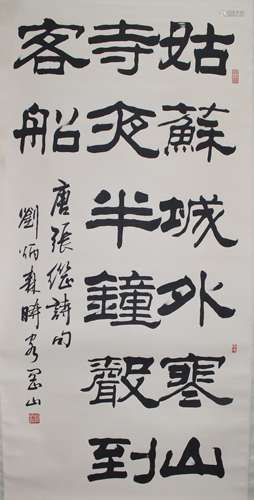 姑蘇城外寒山
寺夜半鐘聲到
客船
唐張繼詩句
劉炳森時客山